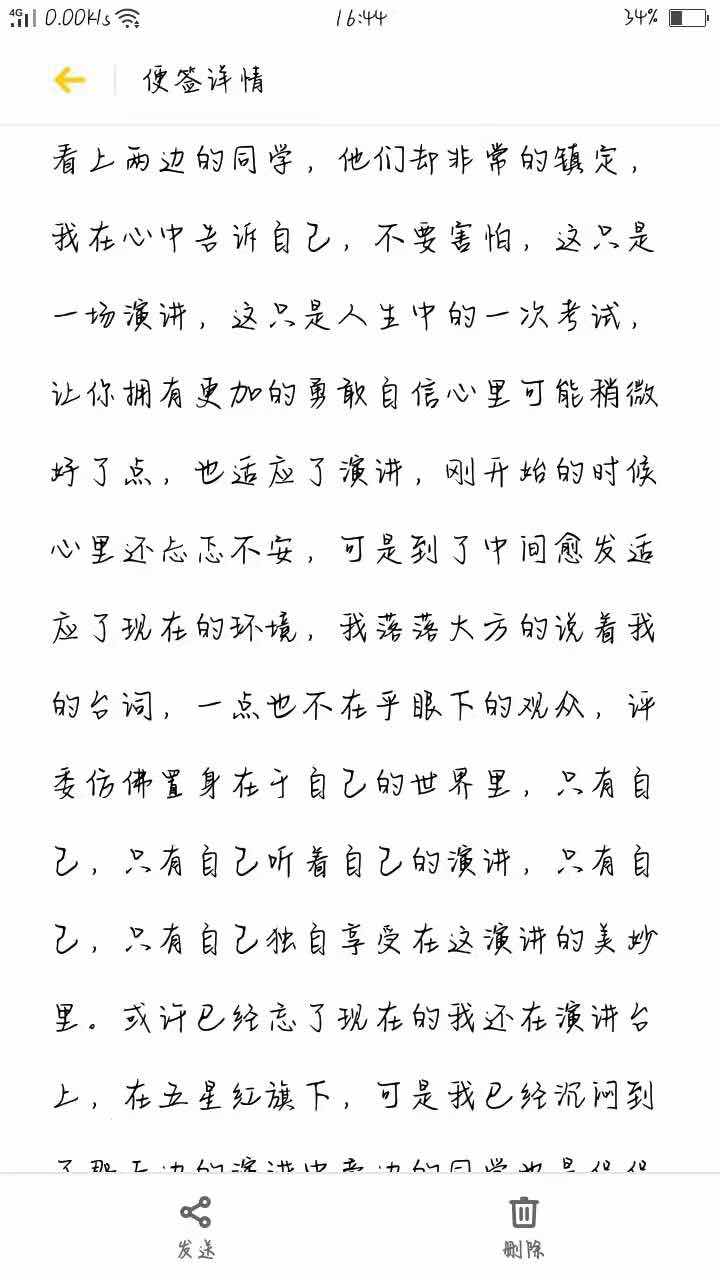 4G 0.00K/s 16:44 34%
便签详情
看上两边的同学，他们却非常的镇定，
我在心中告诉自己，不要害怕，这只是
一场演讲，这只是人生中的一次考试，
让你拥有更加的勇敢自信心里可能稍微
好了点，也适应了演讲，刚开始的时候
心里还忐忑不安，可是到了中间愈发适
应了现在的环境，我落落大方的说着我
的台词，一点也不在乎眼下的观众，评
委仿佛置身在于自己的世界里，只有自
己，只有自己听着自己的演讲，只有自
己，只有自己独自享受在这演讲的美妙
里。或许已经忘了现在的我还在演讲台
上，在五星红旗下，可是我已经沉闷到
发送 删除